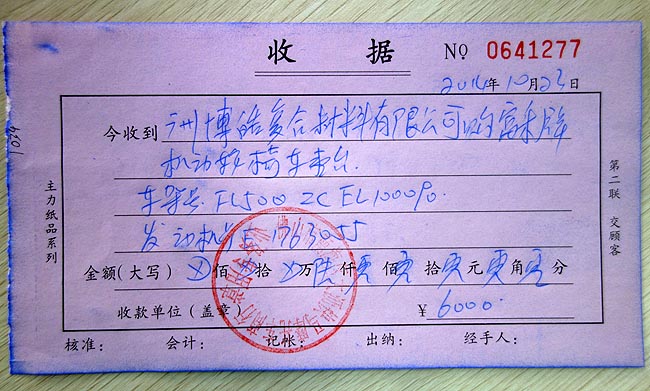 收 据 No 0641277
2014年10月23日
今收到 广州博皓复合材料有限公司购富禾牌
机动轮椅车壹台
车架号 FL500 ZC FL100090
发动机号 F 1763055
金额(大写) ⊗佰⊗拾⊗万陆仟零佰零拾零元零角零分
收款单位(盖章) ¥ 6000.
核准: 会计: 记帐: 出纳: 经手人:
主力纸品系列
第二联 交顾客